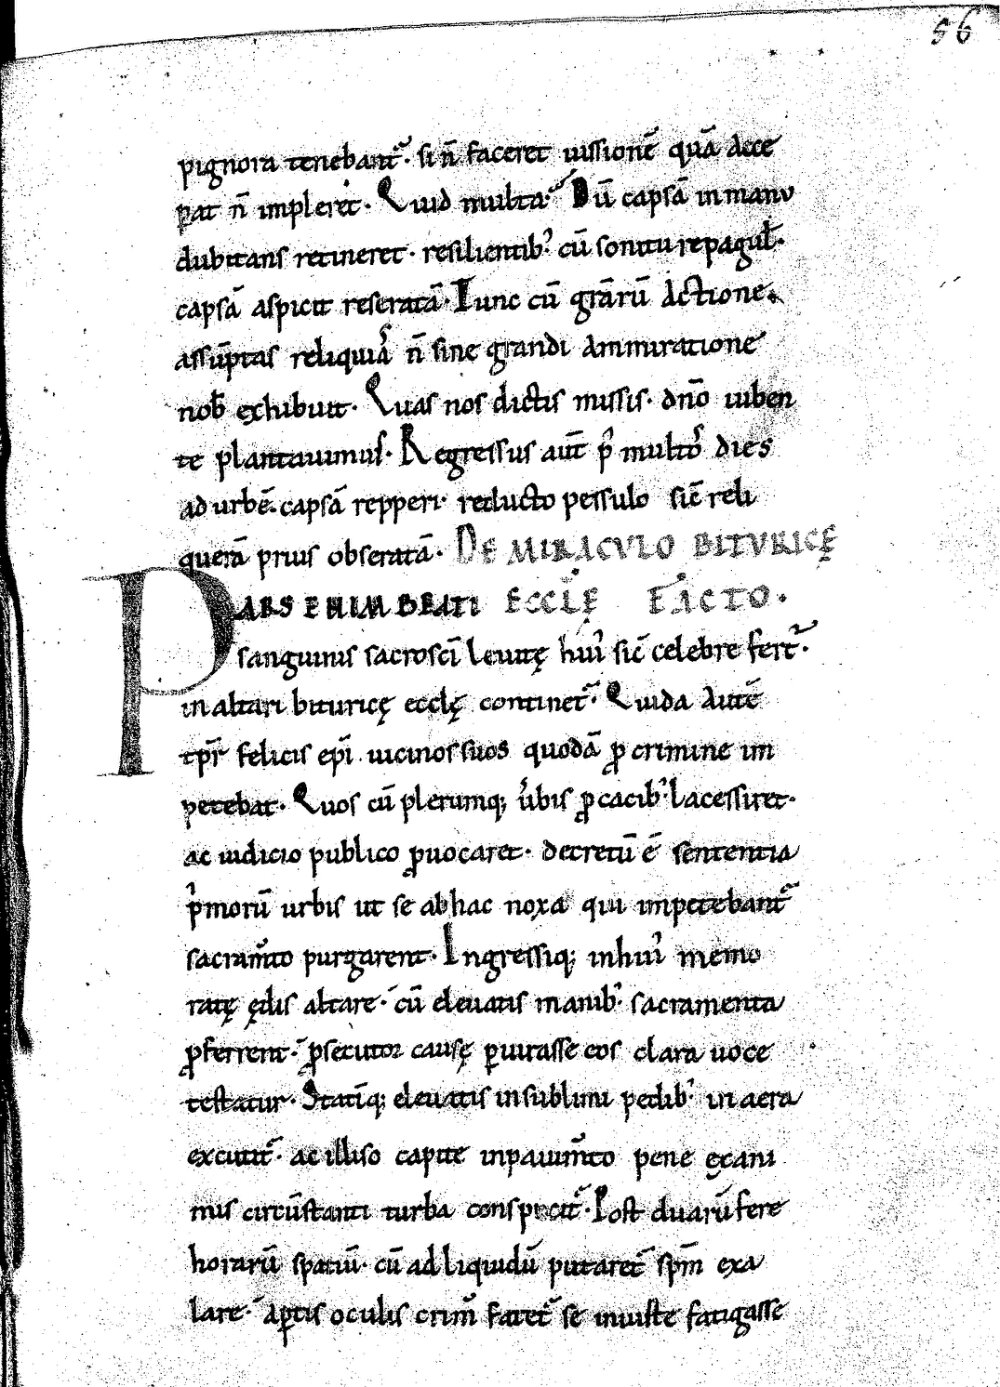 56
pignora tenebant᷑. si n̄ faceret iussionē quā acce
pat n̄ impleret. Quid multa. Dū capsā in manu
dubitans retineret. resilientibꝰ cū sonitu repagul̄.
capsā aspicit reseratā. Tunc cū gr̄arū actione.
assūptas reliquiaꝝ n̄ sine grandi ammiratione
nob̄ exhibuit. Quas nos dictis missis. dn̄o iuben
te plantauimus. Regressus aut̄ p̄ multos dies
ad urbē. capsā repperi. reducto pessulo sic̄ reli
querā prius obseratā. DE MIRACVLO BITVRICĘ
PARS ENIM BEATI ECCLĘ FACTO.
sanguinis sacrosc̄i leuitę huiꝰ sic̄ celebre fert᷑.
in altari bituricę eccl̄ę continet᷑. Quida autē
tp̄r felicis ep̄i uicinos suos quodā ꝓ crimine im
petebat. Quos cū plerumq; ūbis ꝓcacibꝰ lacessiret.
ac iudicio publico ꝓuocaret. decretū ē sententia
p̄morū urbis ut se ab hac noxa qui impetebant᷑
sacram̄to purgarent. Ingressiq; in huiꝰ memo
ratę ędis altare. cū eleuatis manibꝰ sacramenta
ꝓferrent. ꝓsecutor causę ꝑiurasse eos clara uoce
testatur. Statīq; eleuatis in sublimi pedibꝰ in aera
excutit᷑. ac illiso capite in pauim̄to pene exani
mis circūstanti turba conspicit᷑. Post duarū fere
horarū spatiū. cū ad liquidū putaret᷑ sp̄m exa
lare. aꝑtis oculis crim̄ fatet᷑ se iniuste fatigasse